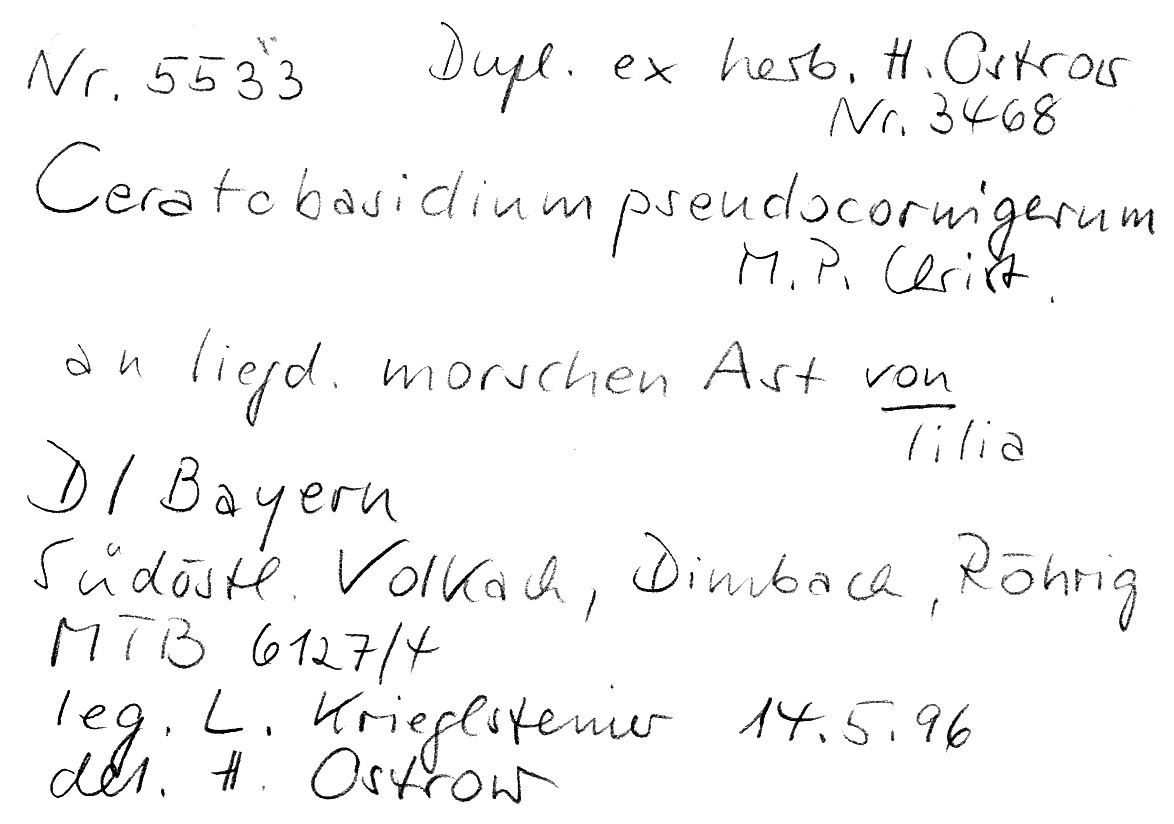 Nr. 5533 Dupl. ex herb. H. Ostrow
Nr. 3468
Ceratobasidium pseudocornigerum
M.P. Christ.
an liegd. morschen Ast von
Tilia
D/ Bayern
Südöstl. Volkach, Dimbach, Röhrig
MTB 6127/4
leg. L. Krieglsteiner 14.5.96
det. H. Ostrow